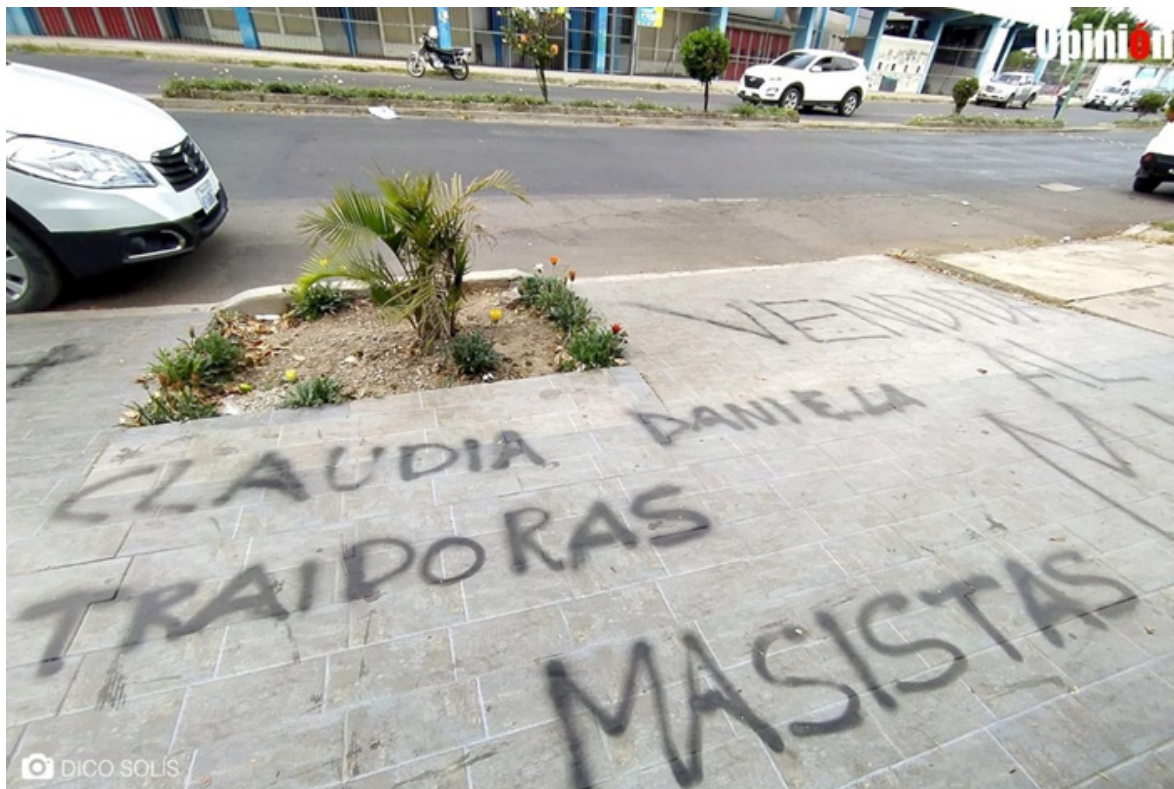 Opinión
AL
CLAUDIA DANIELA
TRAIDORAS
MASISTAS
DICO SOLÍS